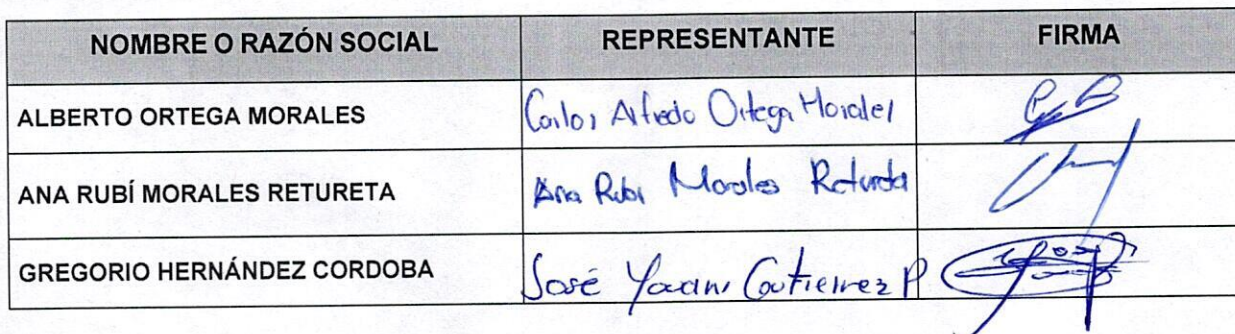 NOMBRE O RAZÓN SOCIAL REPRESENTANTE FIRMA
ALBERTO ORTEGA MORALES Carlos Alfredo Ortega Morales
ANA RUBÍ MORALES RETURETA Ana Rubi Morales Retureta
GREGORIO HERNÁNDEZ CORDOBA José Yovani Gutierrez P